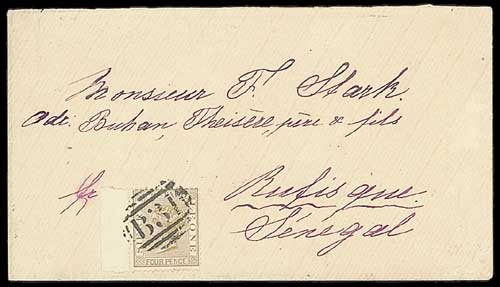 Monsieur F. Stark.
adr: Buhan, Theisère, père & fils
Rufisque.
Sénégal
B31
SI
RONE
FOUR PENCE